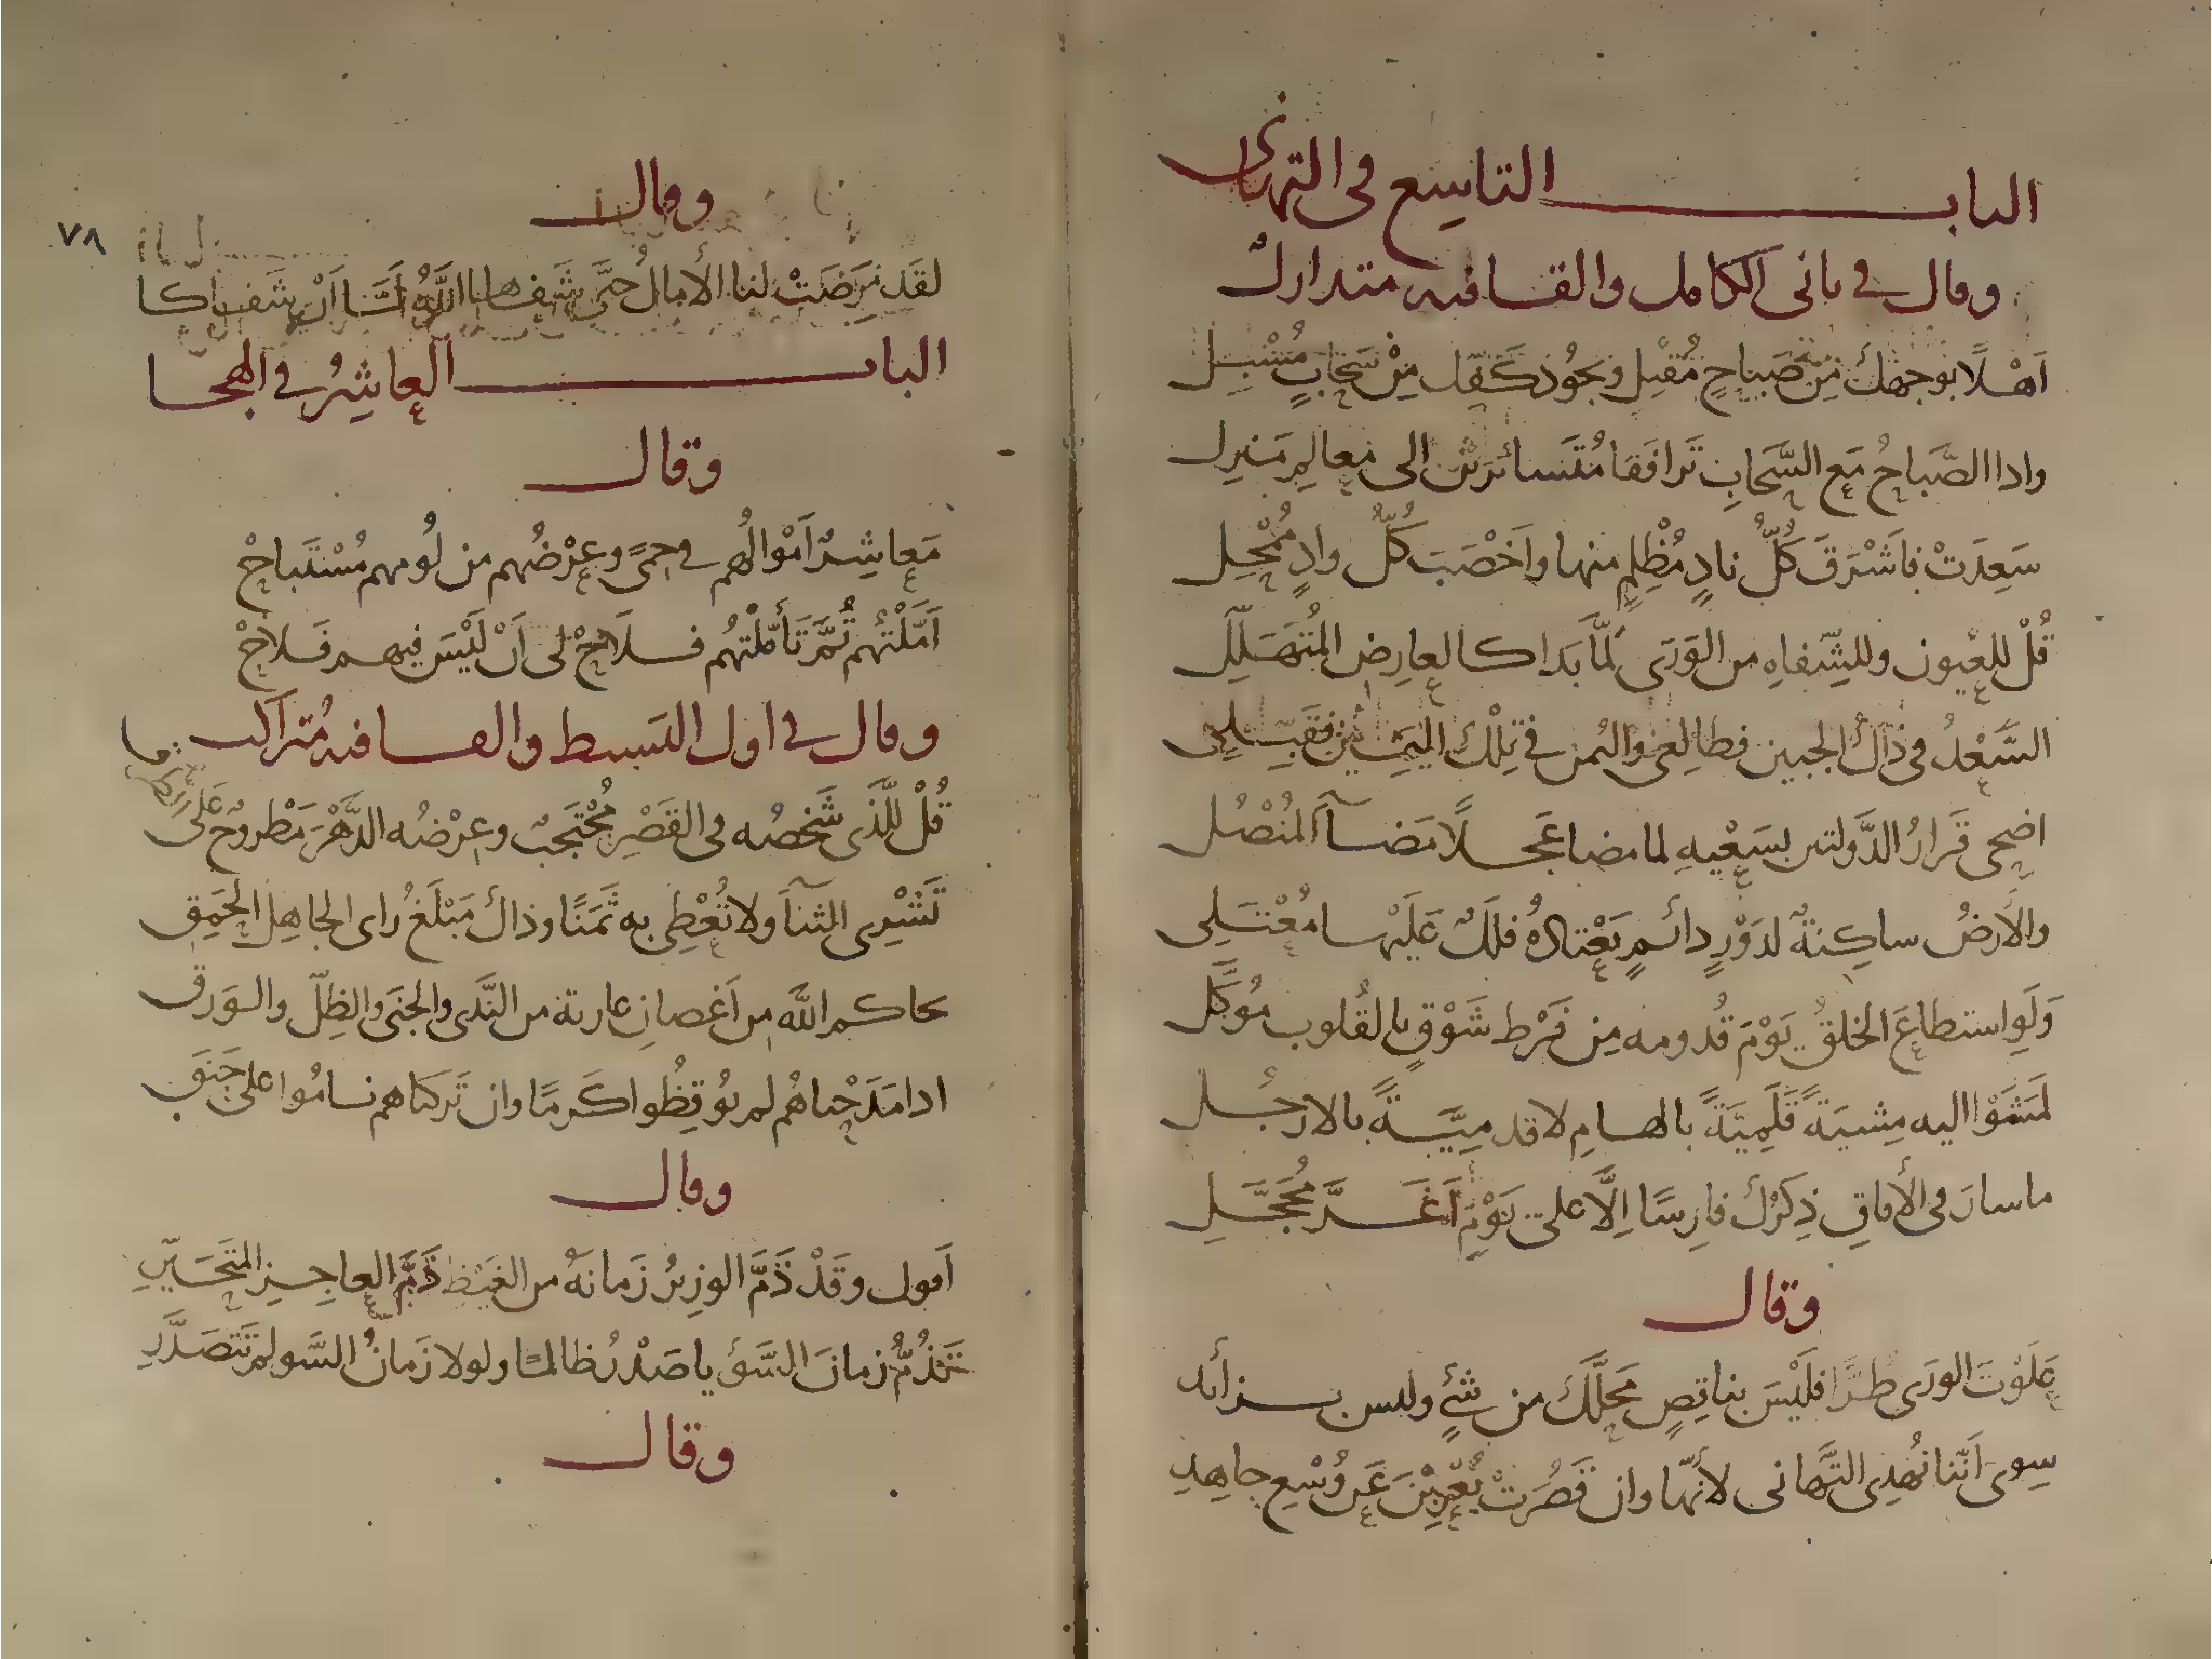 الباب التاسع في التهاني
وقال في ثاني الكامل والقافيه متدارك
اَهْلًا بوجهك مِن صَباحٍ مُقْبِلٍ وبجُود كفّك مِنْ سَحابٍ مُسْبِل
واذا الصَّباحُ مَع السَّحابِ تَرافَقا مُتَسائرين الى مَعالِم مَنزل
سَعِدَتْ فاَشْرَقَ كُلُّ نادٍ مُظْلِمٍ منها واَخْصَبَ كُلُّ وادٍ مُمْحِل
قُلْ للعيون وللشِّفاهِ من الوَرَى لمّا بَدا كالعارِض المُتَهَلِّل
السَّعْدُ في ذاك الجبين فطالِعى واليُمن في تِلْك اليَمين فقَبِّلِى
اضحى قَرارُ الدَّولتين بسَعْيِهِ لما مضا عَجلًا مَضآ المُنْصُل
والاَرضُ ساكِنةٌ لدَوْرٍ دائمٍ يَعْتادُهُ فلَكٌ عَلَيْها مُعْتَلِى
وَلَوِ استطاعَ الخلقُ يَوْمَ قُدومه مِن فَرْط شَوْقٍ بالقُلوب مُوَكَّل
لمَشَوْا اليه مِشيَةً قَلَمِيَّةً بالهامِ لا قدمِيَّةً بالارجُل
ما سارَ في الأفاقِ ذِكرُك فارِسًا اِلَّا على يَوْمٍ اَغَرَّ مُحَجَّلِ
وقال
عَلَوْتَ الورَى طرًّا فلَيْسَ بناقِصٍ مَحلَّكَ من شئٍ وليس بزائد
سِوى اَنّنا نُهدِى التَّهانى لأنّها وان قَصُرَتْ يُعْرِبْنَ عَن وُسْعِ جاهِدِ
وقال
٧٨
لقَد مَرِضَتْ لنا الأمالُ حتَّى شَفاها اللَّهُ لمَّا اَنْ شَفاكا
الباب العاشِرُ في الهجا
وقال
مَعاشِرٌ اَمْوالُهم في حِمًى وعِرْضُهم من لُومهم مُسْتَباحْ
اَمَّلْتُهم ثُمَّ تَأَمّلْتُهُم فلاحَ لى اَنْ لَيْسَ فيهم فَلاحْ
وقال في اول البَسيط والقافيه مُتراكب
قُلْ للَّذى شَخصُه في القَصْرِ مُحْتَجبٌ وعِرْضُه الدَّهْرَ مَطْروحٌ عَلى
تَشْترِى الثنآ ولا تُعْطِى به ثَمَنًا وذاك مَبْلَغُ راى الجاهِل الحَمِقِ
حاكم اللَّه من اَغصانِ عارية من النَّدى والجنَى والظِلّ والوَرق
اذا مَدَحْناهُم لم يُوقِظُوا كَرمًا وان تَركناهم ناموا على حَنَقِ
وقال
اَقول وقَدْ ذَمَّ الوزِيرُ زَمانَهُ من الغَيْظ ذَمَّ العاجِزِ المتَحَيّرِ
تَذُمُّ زمانَ السَّوْءِ يا صَدْرُ ظالمًا ولولا زَمانُ السَّو لم تَتَصَدَّرِ
وقال